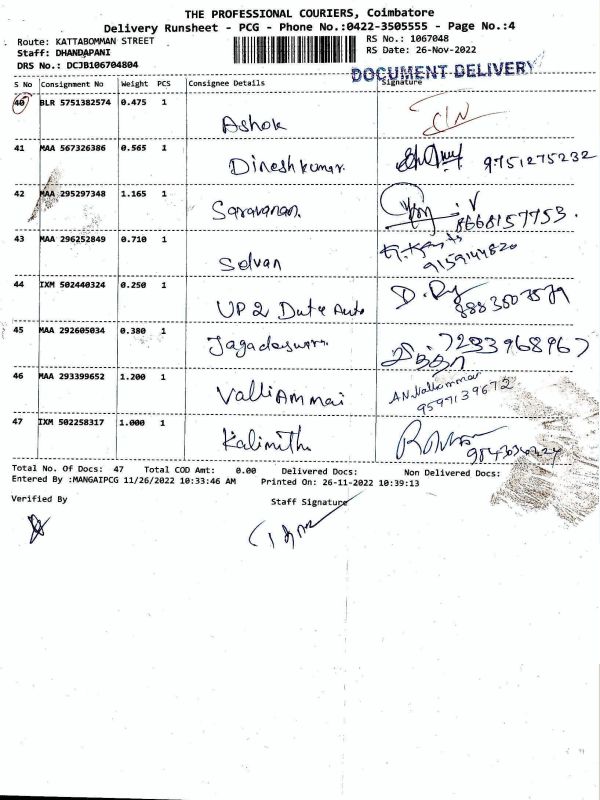 THE PROFESSIONAL COURIERS, Coimbatore
Delivery Runsheet - PCG - Phone No.:0422-3505555 - Page No.:4
Route: KATTABOMMAN STREET RS No.: 1067048
Staff: DHANDAPANI RS Date: 26-Nov-2022
DRS No.: DCJB106704804 DOCUMENT DELIVERY
S No Consignment No Weight PCS Consignee Details Signature
40 BLR 5751382574 0.475 1
Ashok
41 MAA 567326386 0.565 1
Dineshkumar. 9751275232
42 MAA 295297348 1.165 1
Saravanan. 8668157753.
43 MAA 296252849 0.710 1
Selvan 9159144820
44 IXM 502440324 0.250 1
UP 2 Date Auto
45 MAA 292605034 0.380 1
7293968967
46 MAA 293399652 1.200 1
ValliAmmai A.N.Valliammai
9597139672
47 IXM 502258317 1.000 1
Total No. Of Docs: 47 Total COD Amt: 0.00 Delivered Docs: Non Delivered Docs:
Entered By :MANGAIPCG 11/26/2022 10:33:46 AM Printed On: 26-11-2022 10:39:13
Verified By Staff Signature